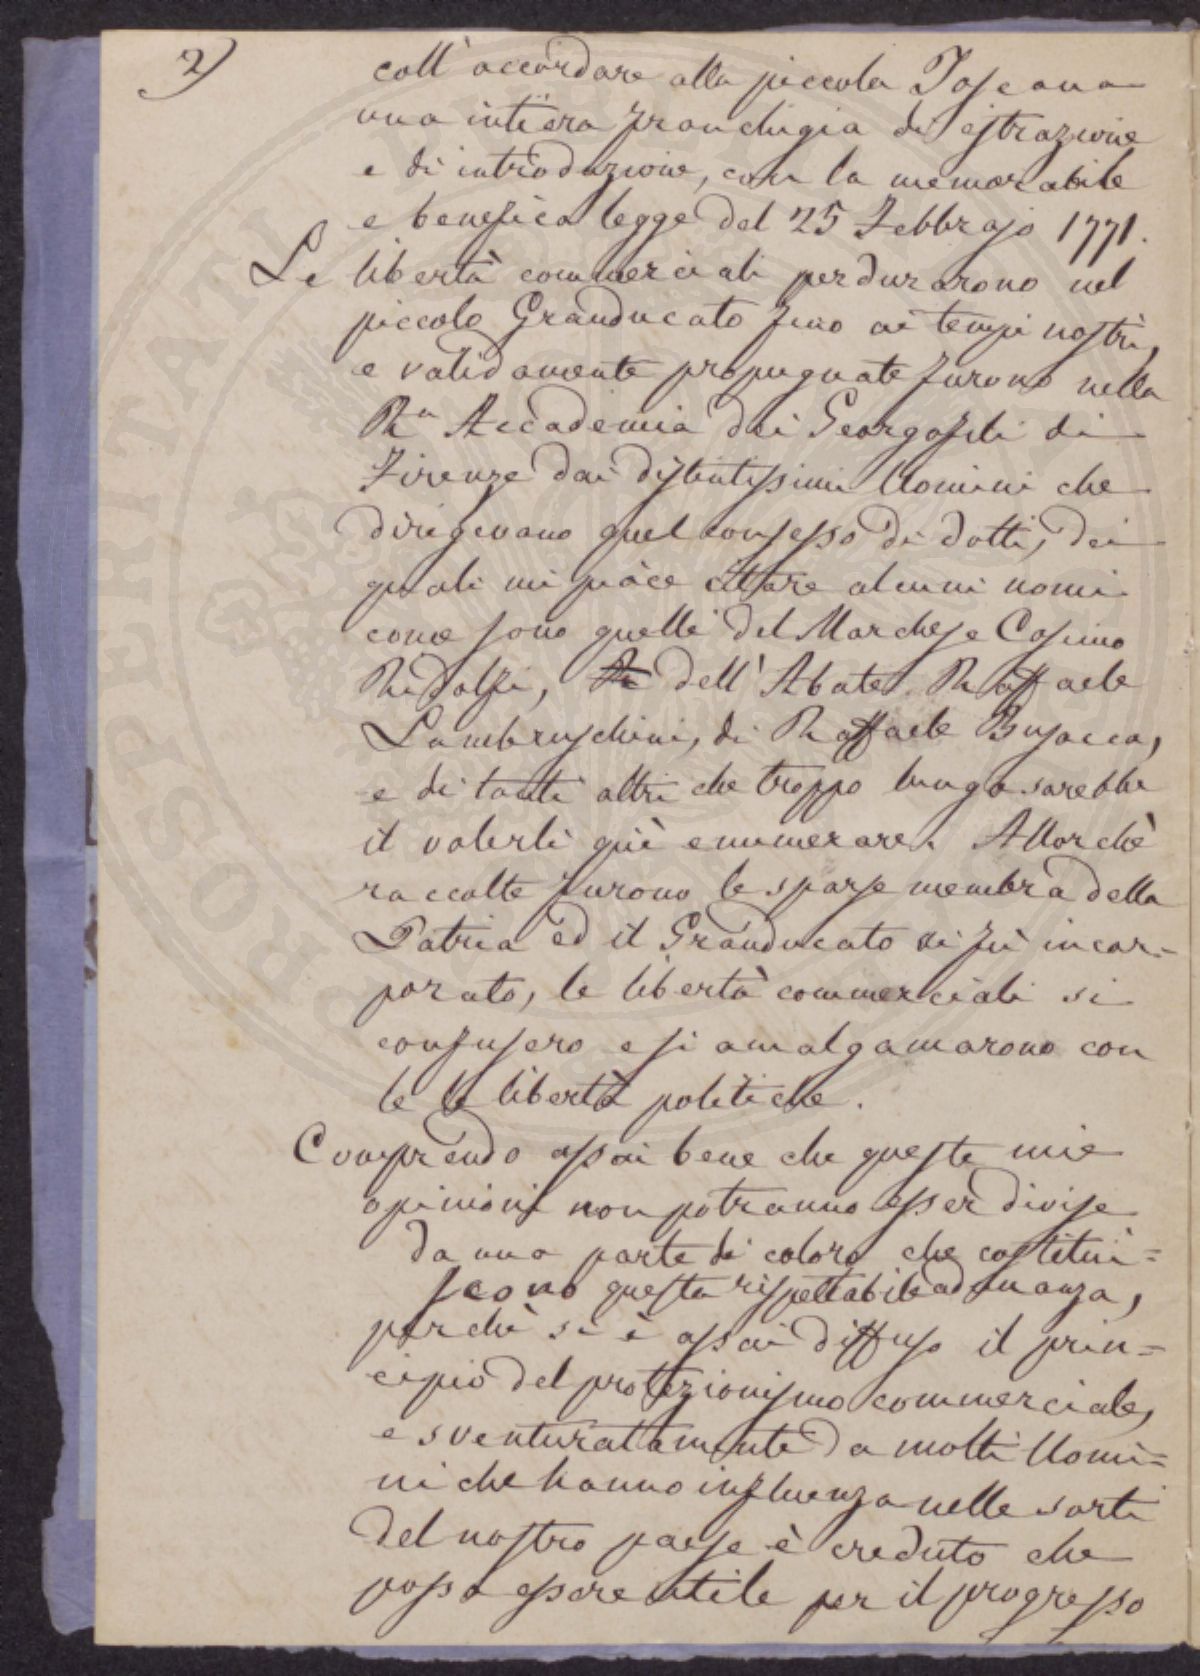 2)
coll'accordare alla piccola Toscana
una intiera franchigia di estrazione
e di introduzione, con la memorabile
e benefica legge del 25 Febbrajo 1771.
Le libertà commerciali perdurarono nel
piccolo Granducato fino ai tempi nostri,
e validamente propugnate furono nella
Rª Accademia dei Georgofili di
Firenze dai distintissimi Uomini che
dirigevano quel consesso di dotti, dei
quali mi piace citare alcuni nomi
come sono quelli del Marchese Cosimo
Ridolfi, dell'Abate Raffaele
Lambruschini, di Raffaele Busacca,
e di tanti altri che troppo lungo sarebbe
il volerli quì enumerare. Allorchè
raccolte furono le sparse membra della
Patria ed il Granducato vi fù incor=
porato, le libertà commerciali si
confusero e si amalgamarono con
le le libertà politiche.
Comprendo assai bene che queste mie
opinioni non potranno esser divise
da una parte di coloro che costitui=
scono questa rispettabile adunanza,
perchè si è assai diffuso il prin=
cipio del protezionismo commerciale,
e sventuratamente da molti Uomi=
ni che hanno influenza nelle sorti
del nostro paese è creduto che
possa essere utile per il progresso
PROSPERITATI PUBLICAE